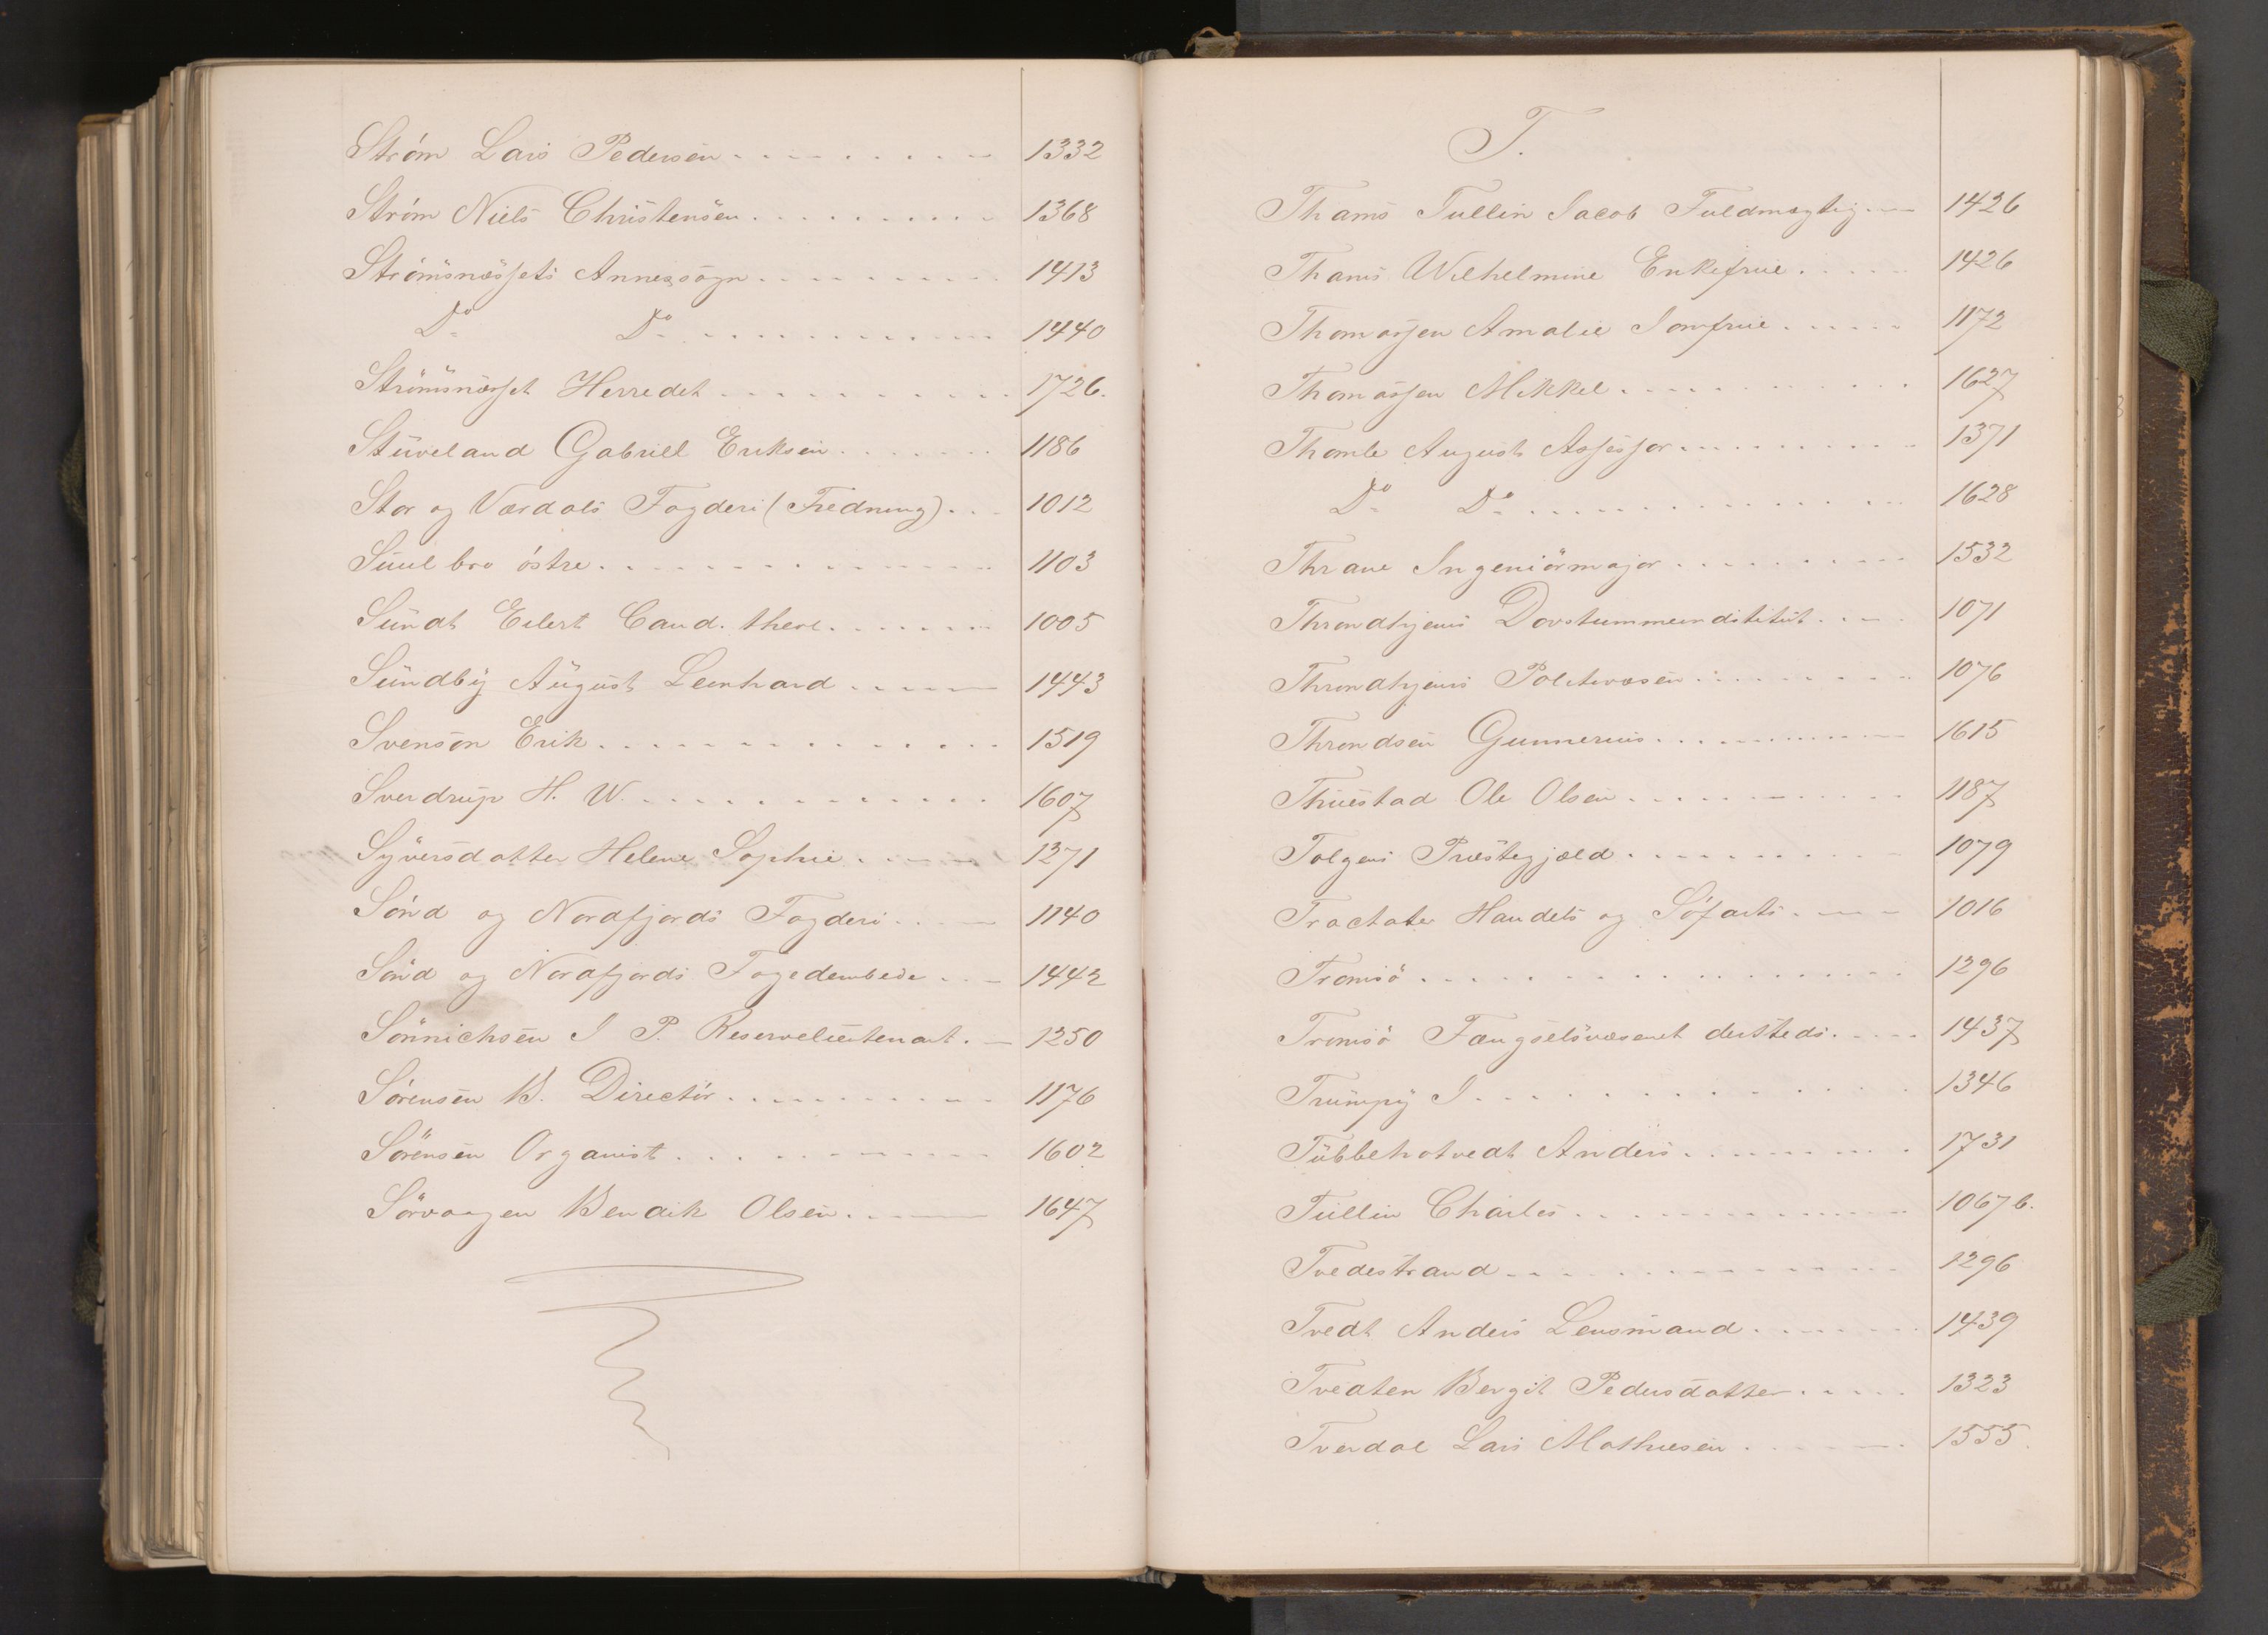 Ström Lars Pedersen 1332
Ström Niels Christensen 1368
Strömsnæssets Annexsogn 1413
Do Do 1440
Strömsnæsset Herredet 1726.
Stuveland Gabriel Eriksen 1186
Stor og Værdals Fogderi (Fredning) 1012
Suul bro östre 1103
Sundt Eilert Cand. theol. 1005
Sundby August Leonhard 1443
Svenson Erik 1519
Sverdrup H. W. 1607
Syversdatter Helene Sophie 1271
Sönd og Nordfjords Fogderi 1140
Sönd og Nordfjords Fogedembede 1442
Sönnichsen I P. Reservelieutenant. 1250
Sörensen B. Directör 1176
Sörensen Organist 1602
Sörvaagen Bendik Olsen 1647
T.
Thams Tullin Jacob Fuldmægtig 1426
Thams Wilhelmine Enkefrue 1426
Thomassen Amalie Jomfrue 1172
Thomassen Mikkel 1627
Thomle August Assessor 1371
Do Do 1628
Thrane Ingeniörmajor 1532
Throndhjems Dovstummeindstitut 1071
Throndhjems Politivæsen 1076
Throndsen Gunnerius 1615
Thuestad Ole Olsen 1187
Tolgens Præstegjæld 1079
Tractater Handels og Söfarts 1016
Tromsö 1296
Tromsö Fængselsvæsenet dersteds 1437
Trumpy I 1346
Tubbehotvedt Anders 1731
Tullin Charles 1067 b.
Tvedestrand 1296
Tvedt Anders Lensmand 1439
Tvedten Bergit Pedersdatter 1323
Tverdal Lars Mathiesen 1555.